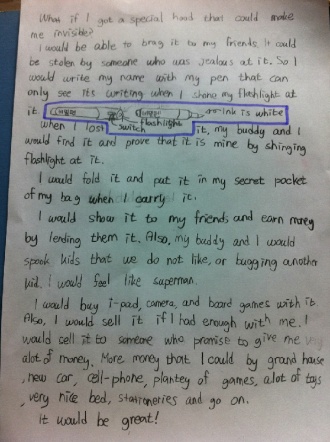 What if I got a special hood that could make
me invisible?
I would be able to brag it to my friends. It could
be stolen by someone who was jealous at it. So I
would write my name with my pen that can
only see its writing when I shine my flashlight at
it. switch flashlight ink is white
when I lost it, my buddy and I
would find it and prove that it is mine by shinging
flashlight at it.
I would fold it and put it in my secret pocket
of my bag when I carry it.
I would show it to my friends and earn money
by lending them it. Also, my buddy and I would
spook kids that we do not like, or bugging another
kid. I would feel like superman.
I would buy i-pad, camera, and board games with it.
Also, I would sell it if I had enough with me. I
would sell it to someone who promise to give me very
alot of money. More money that I could by grand house
, new car, cell-phone, plantey of games, alot of toys
, very nice bed, stationeries and go on.
It would be great!